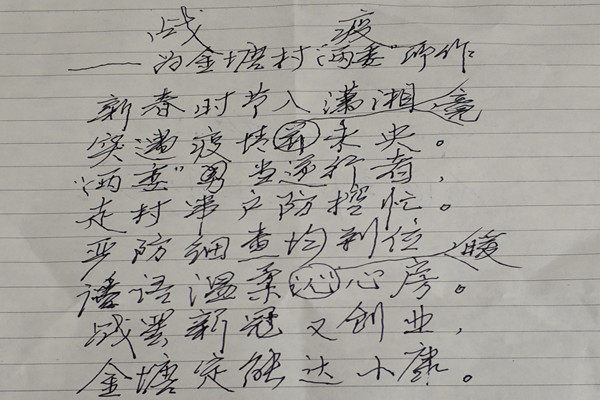 战 疫
——为金塘村“两委”所作
新春时节入潇湘 竟
突遇疫情未央。
“两委”勇当逆行者，
走村串户防控忙。
严防细查均到位 暖
语温柔沁心房。
战罢新冠又创业，
金塘定能达小康。